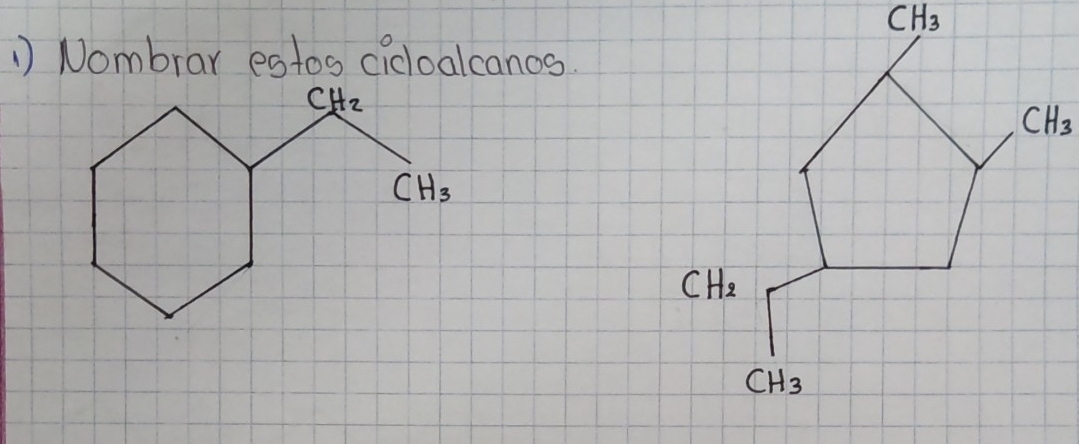 1) Nombrar estos cicloalcanos.
CH2
CH3
CH3
CH3
CH2
CH3